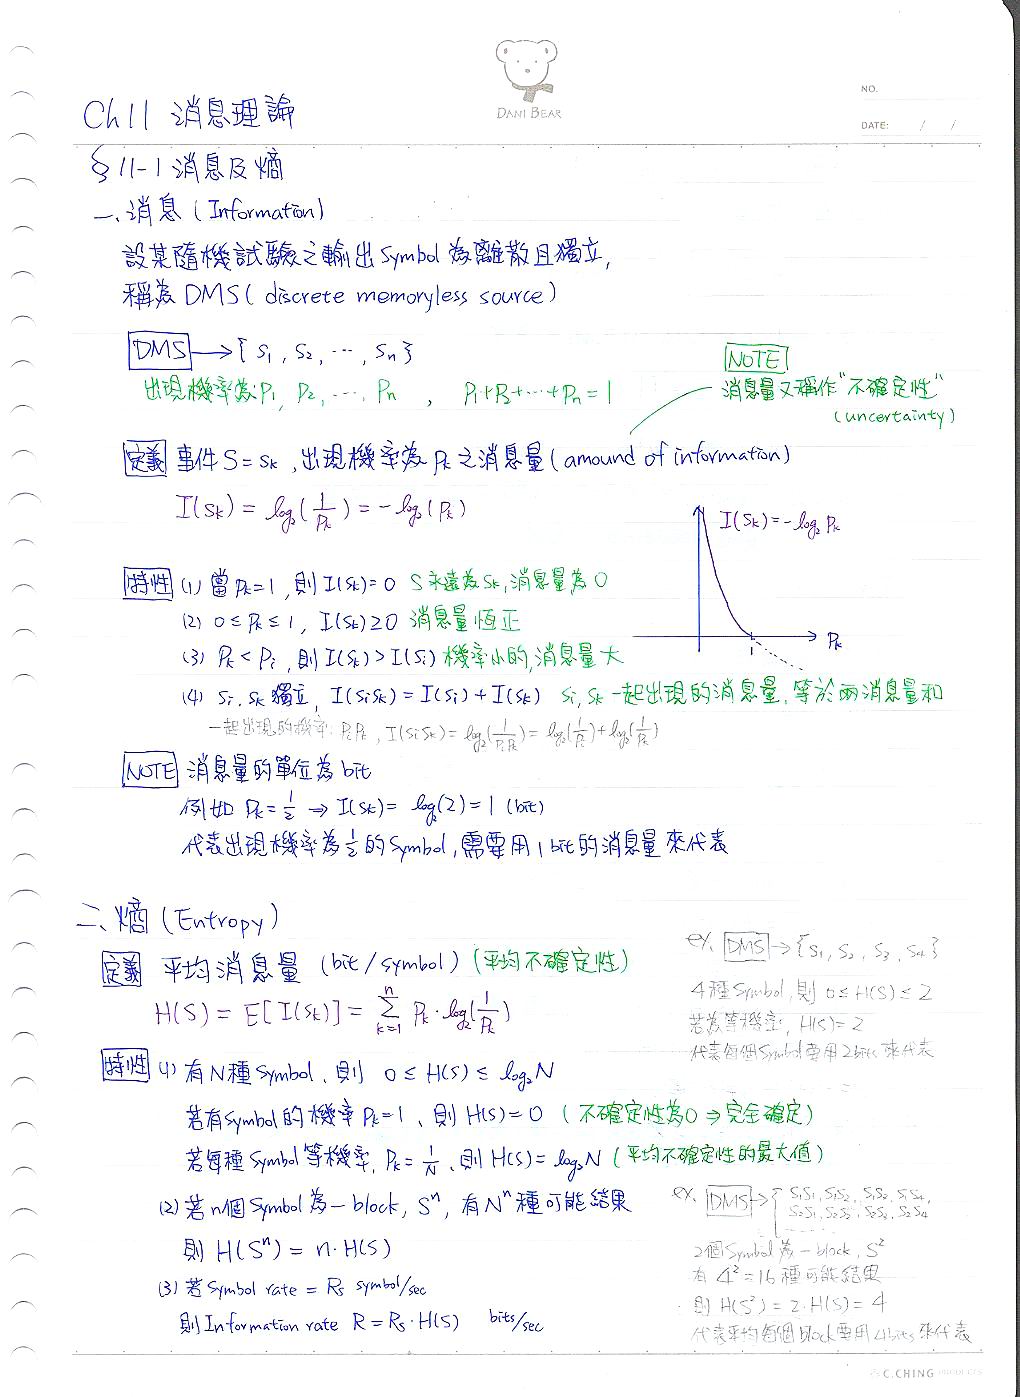 DANI BEAR
NO.
DATE: / /
Ch11 消息理論
§11-1 消息及熵
一、消息 (Information)
設某隨機試驗之輸出Symbol為離散且獨立,
稱為DMS (discrete memoryless source)
DMS → { S₁, S₂, ⋯, Sn }
出現機率為 P₁, P₂, ⋯, Pn , P₁+P₂+⋯+Pn=1
NOTE
消息量又稱作"不確定性"
(uncertainty)
定義 事件S=Sk, 出現機率為Pk之消息量 (amound of information)
I(Sk) = log₂(1/Pk) = -log₂(Pk)
I(Sk)=-log₂Pk
Pk
1
特性 (1) 當Pk=1, 則I(Sk)=0 S永遠為Sk, 消息量為0
(2) 0≤Pk≤1, I(Sk)≥0 消息量恆正
(3) Pk<Pi, 則I(Sk)>I(Si) 機率小的, 消息量大
(4) Si, Sk獨立, I(SiSk)=I(Si)+I(Sk) Si, Sk一起出現的消息量, 等於兩消息量和
一起出現的機率: PiPk, I(SiSk)=log₂(1/PiPk)=log₂(1/Pi)+log₂(1/Pk)
NOTE 消息量的單位為bit
例如 Pk=1/2 ⇒ I(Sk)= log₂(2)=1 (bit)
代表出現機率為1/2的Symbol, 需要用1bit的消息量來代表
二、熵 (Entropy)
定義 平均消息量 (bit/symbol) (平均不確定性)
H(S) = E[I(Sk)] = ∑ₖ₌₁ⁿ Pk·log₂(1/Pk)
ex. DMS → {S₁, S₂, S₃, S₄}
4種Symbol, 則 0≤H(S)≤2
若為等機率, H(S)=2
代表每個Symbol要用2bits來代表
特性 (1) 有N種Symbol, 則 0≤H(S)≤log₂N
若有Symbol的機率Pk=1, 則H(S)=0 (不確定性為0⇒完全確定)
若每種Symbol等機率, Pk=1/N, 則H(S)=log₂N (平均不確定性的最大值)
(2) 若n個Symbol為一block, Sⁿ, 有Nⁿ種可能結果
則 H(Sⁿ) = n·H(S)
(3) 若Symbol rate = Rs symbol/sec
則Information rate R=Rs·H(S) bits/sec
ex. DMS →
2個Symbol為一block, S²
有 4²=16種可能結果
則 H(S²)=2·H(S)=4
代表平均每個block要用4bits來代表
C.CHING PRODUCTS